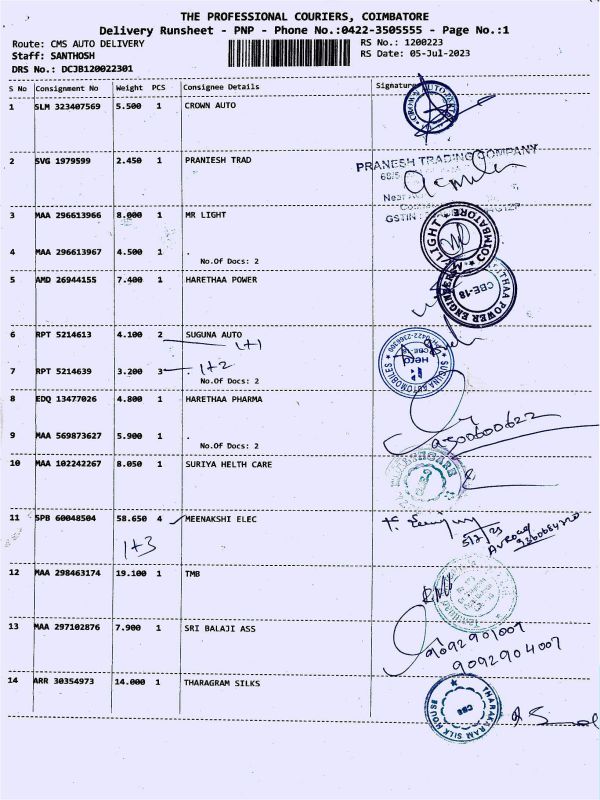 THE PROFESSIONAL COURIERS, COIMBATORE
Delivery Runsheet - PNP - Phone No.:0422-3505555 - Page No.:1
Route: CMS AUTO DELIVERY
RS No.: 1200223
Staff: SANTHOSH
RS Date: 05-Jul-2023
DRS No.: DCJB120022301
S No Consignment No Weight PCS Consignee Details Signature
1 SLM 323407569 5.500 1 CROWN AUTO
2 SVG 1979599 2.450 1 PRANIESH TRAD
PRANESH TRADING COMPANY
GSTIN :
3 MAA 296613966 8.000 1 MR LIGHT
4 MAA 296613967 4.500 1 .
No.Of Docs: 2
LIGHT COIMBATORE
5 AMD 26944155 7.400 1 HARETHAA POWER
CBE-18
POWER ENGINEER
6 RPT 5214613 4.100 2 SUGUNA AUTO
1+1
7 RPT 5214639 3.200 3 .
1+2
No.Of Docs: 2
SUGUNA AUTOMOBILES
8 EDQ 13477026 4.800 1 HARETHAA PHARMA
9 MAA 569873627 5.900 1 .
No.Of Docs: 2
10 MAA 102242267 8.050 1 SURIYA HELTH CARE
11 SPB 60048504 58.650 4 MEENAKSHI ELEC
1+3
5/7/23
12 MAA 298463174 19.100 1 TMB
13 MAA 297102876 7.900 1 SRI BALAJI ASS
9092901007
9092904007
14 ARR 30354973 14.000 1 THARAGRAM SILKS
THARAKARAM SILK HOUSE
CBE